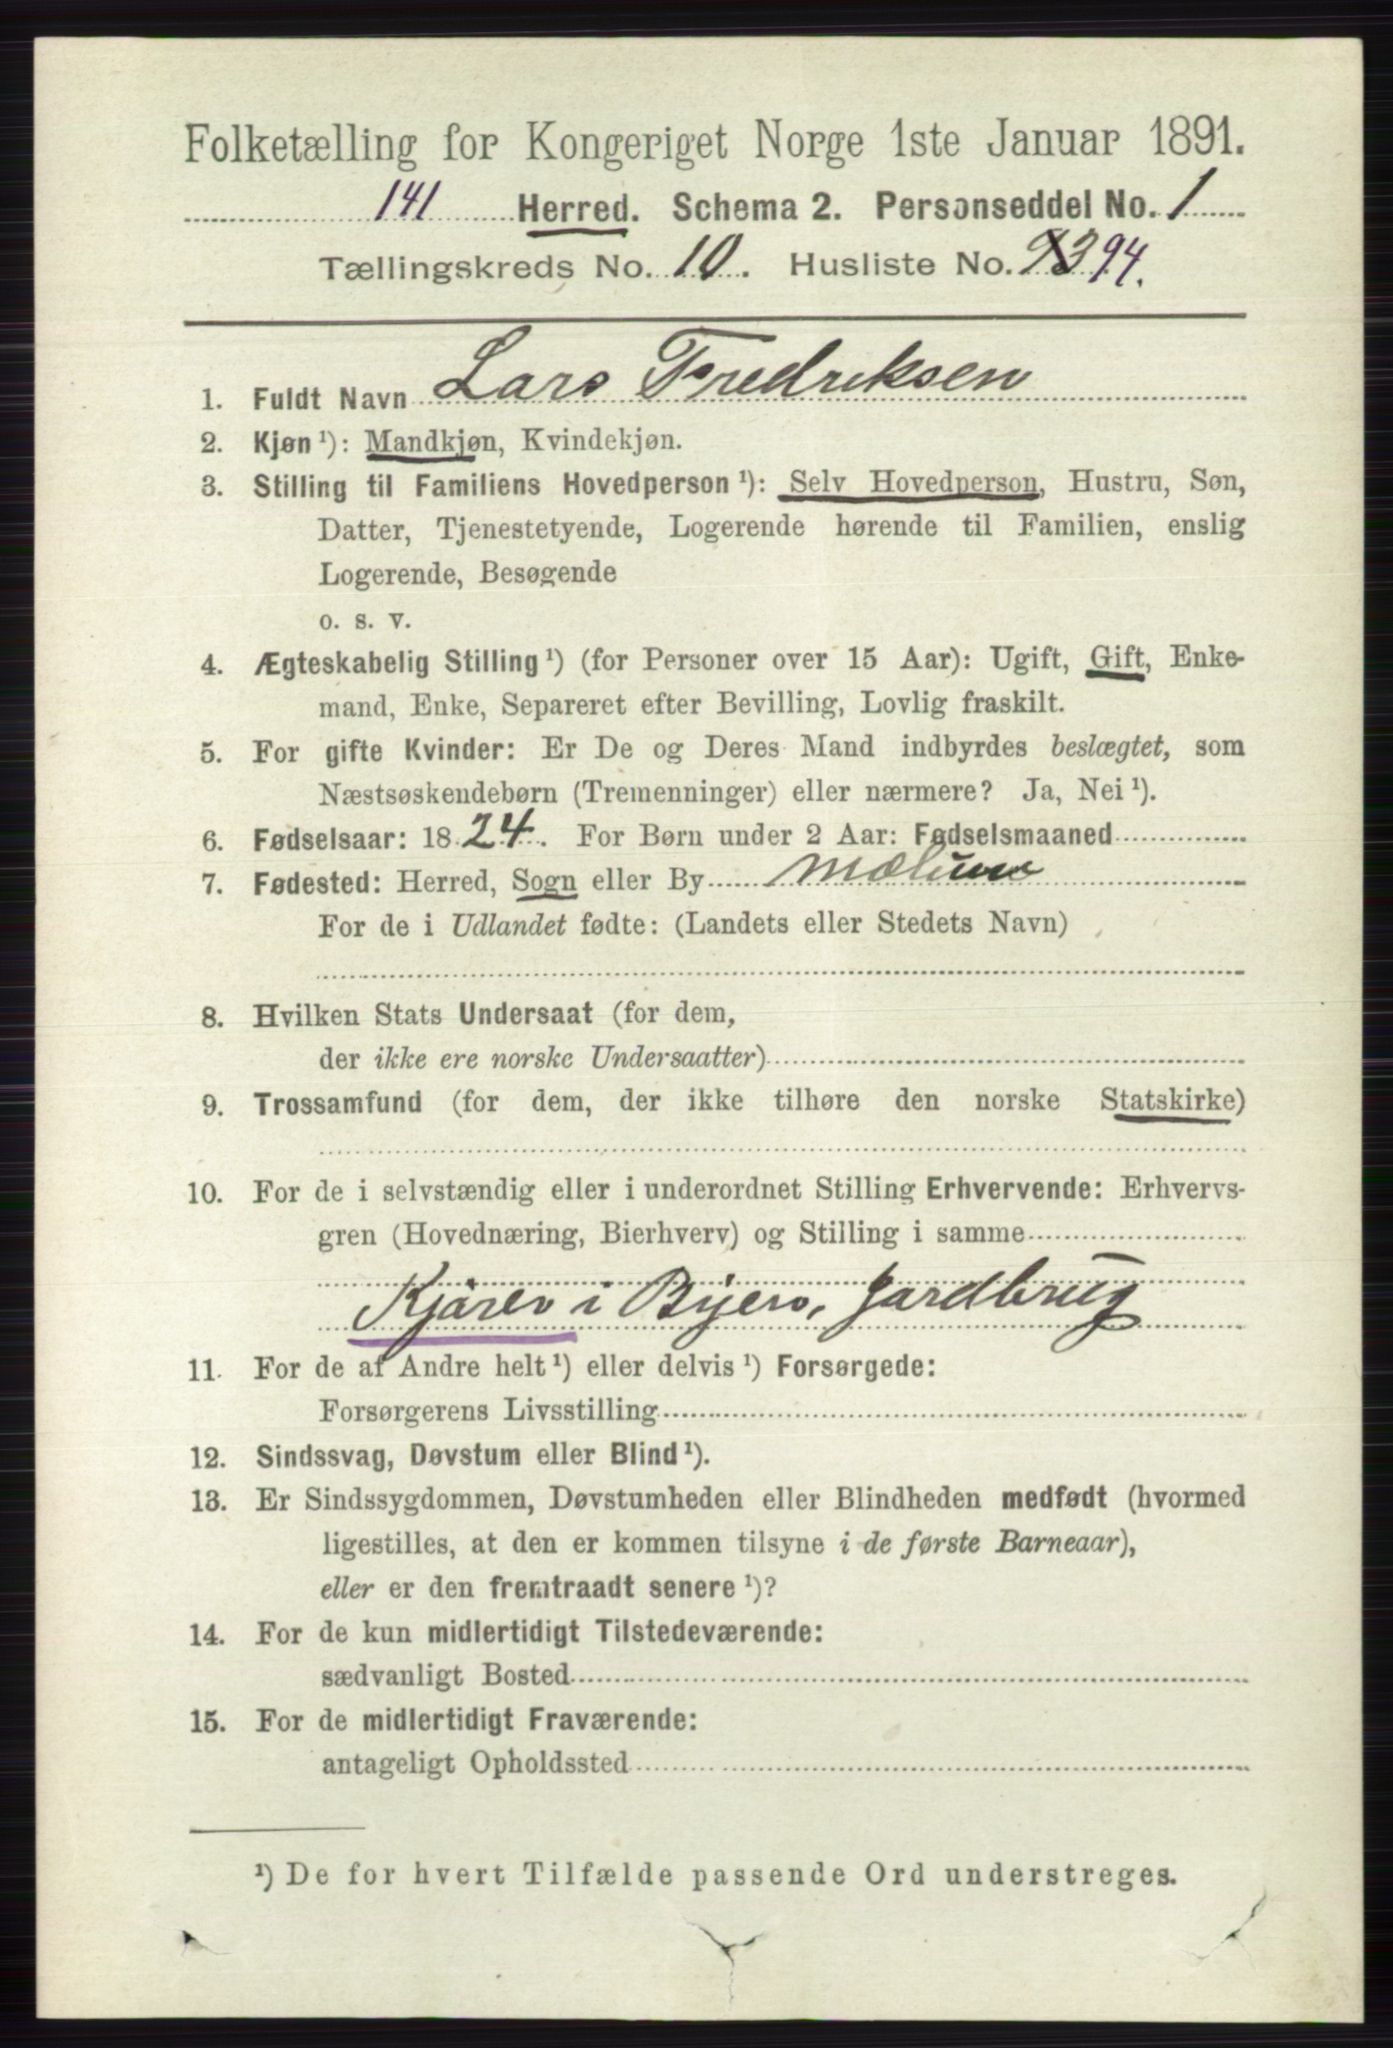 Folketælling for Kongeriget Norge 1ste Januar 1891.
141 Herred. Schema 2. Personseddel No. 1
Tællingskreds No. 10. Husliste No. 93 94.
1. Fuldt Navn Lars Fredriksen
2. Kjøn ¹): Mandkjøn, Kvindekjøn.
3. Stilling til Familiens Hovedperson ¹): Selv Hovedperson, Hustru, Søn,
Datter, Tjenestetyende, Logerende hørende til Familien, enslig
Logerende, Besøgende
o. s. v.
4. Ægteskabelig Stilling ¹) (for Personer over 15 Aar): Ugift, Gift, Enke-
mand, Enke, Separeret efter Bevilling, Lovlig fraskilt.
5. For gifte Kvinder: Er De og Deres Mand indbyrdes beslægtet, som
Næstsøskendebørn (Tremenninger) eller nærmere? Ja, Nei ¹).
6. Fødselsaar: 1824. For Børn under 2 Aar: Fødselsmaaned
7. Fødested: Herred, Sogn eller By Mælum
For de i Udlandet fødte: (Landets eller Stedets Navn)
8. Hvilken Stats Undersaat (for dem,
der ikke ere norske Undersaatter)
9. Trossamfund (for dem, der ikke tilhøre den norske Statskirke)
10. For de i selvstændig eller i underordnet Stilling Erhvervende: Erhvervs-
gren (Hovednæring, Bierhverv) og Stilling i samme
Kjører i Byen, Jardbrug
11. For de af Andre helt ¹) eller delvis ¹) Forsørgede:
Forsørgerens Livsstilling
12. Sindssvag, Døvstum eller Blind ¹).
13. Er Sindssygdommen, Døvstumheden eller Blindheden medfødt (hvormed
ligestilles, at den er kommen tilsyne i de første Barneaar),
eller er den fremtraadt senere ¹)?
14. For de kun midlertidigt Tilstedeværende:
sædvanligt Bosted
15. For de midlertidigt Fraværende:
antageligt Opholdssted
¹) De for hvert Tilfælde passende Ord understreges.